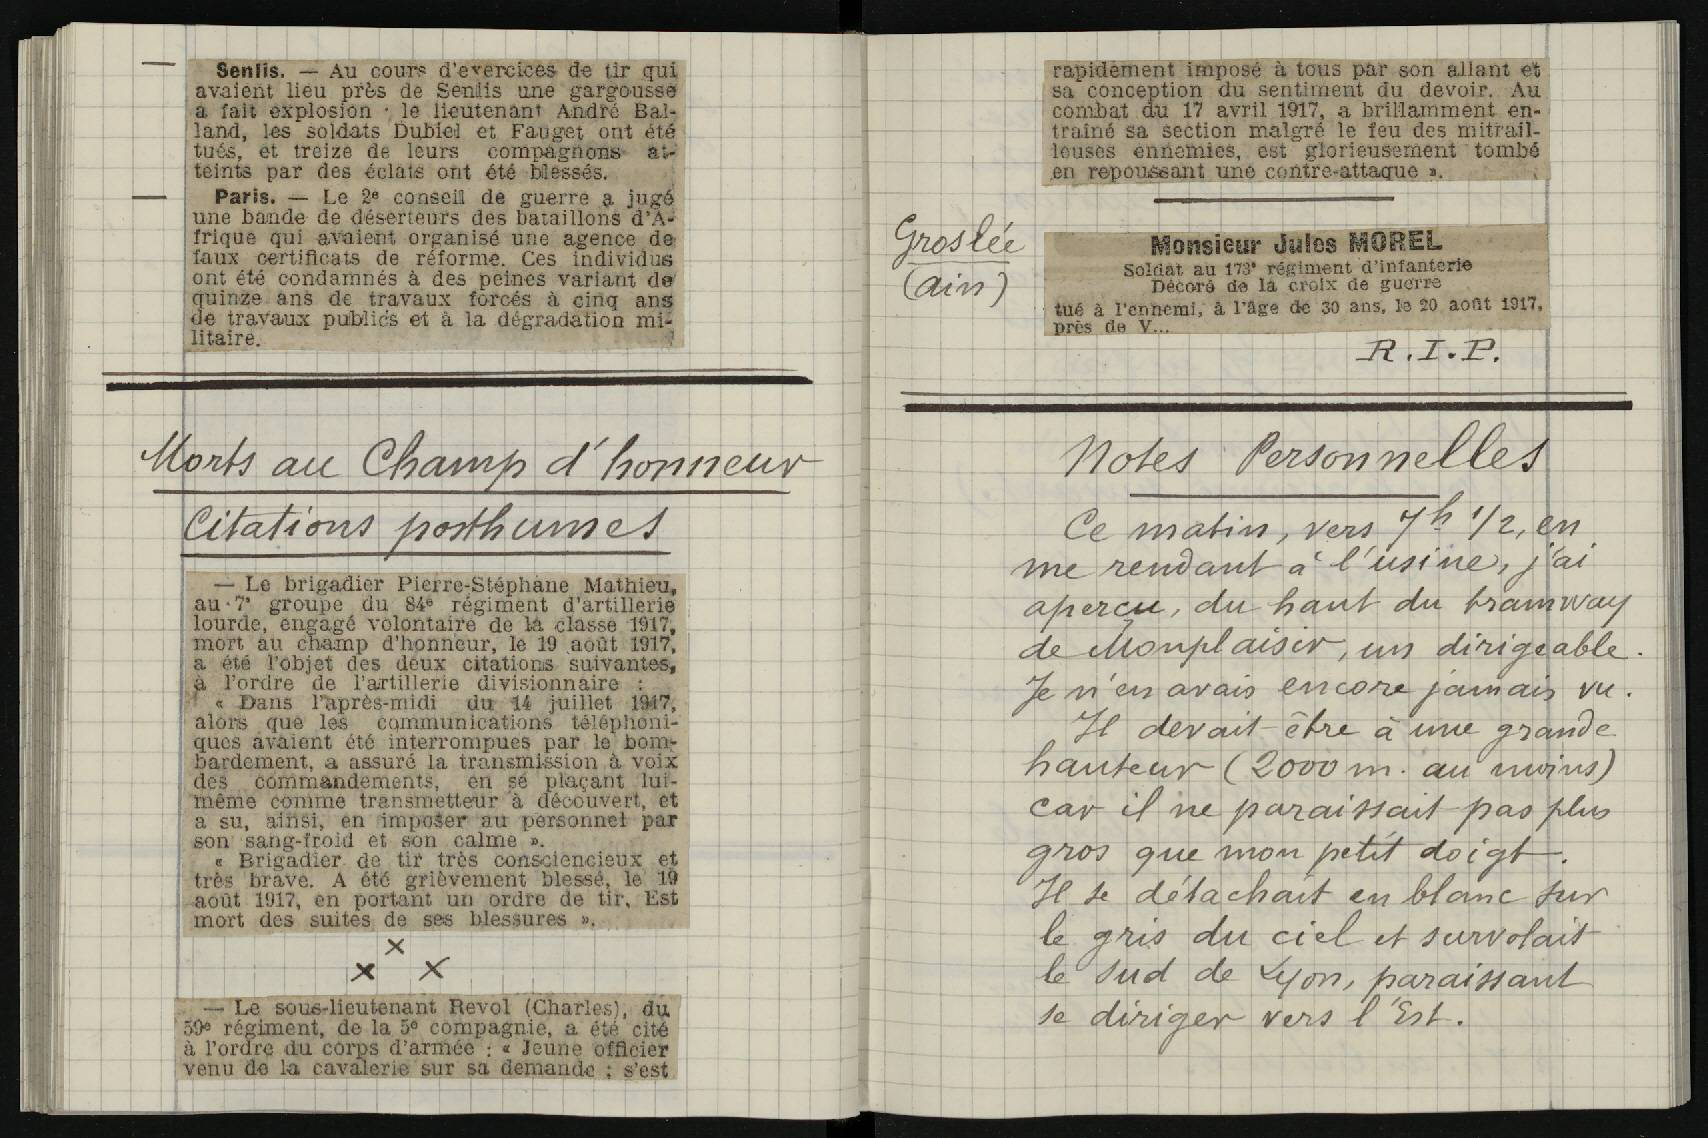 Senlis. — Au cours d'exercices de tir qui
avaient lieu près de Senlis une gargousse
a fait explosion : le lieutenant André Bal-
land, les soldats Dubiel et Fauget ont été
tués, et treize de leurs compagnons at-
teints par des éclats ont été blessés.
Paris. — Le 2e conseil de guerre a jugé
une bande de déserteurs des bataillons d'A-
frique qui avaient organisé une agence de
faux certificats de réforme. Ces individus
ont été condamnés à des peines variant de
quinze ans de travaux forcés à cinq ans
de travaux publics et à la dégradation mi-
litaire.
Morts au Champ d'honneur
Citations posthumes
— Le brigadier Pierre-Stéphane Mathieu,
au 7e groupe du 84e régiment d'artillerie
lourde, engagé volontaire de la classe 1917,
mort au champ d'honneur, le 19 août 1917,
a été l'objet des deux citations suivantes,
à l'ordre de l'artillerie divisionnaire :
« Dans l'après-midi du 14 juillet 1917,
alors que les communications téléphoni-
ques avaient été interrompues par le bom-
bardement, a assuré la transmission à voix
des commandements, en se plaçant lui-
même comme transmetteur à découvert, et
a su, ainsi, en imposer au personnel par
son sang-froid et son calme ».
« Brigadier de tir très consciencieux et
très brave. A été grièvement blessé, le 19
août 1917, en portant un ordre de tir. Est
mort des suites de ses blessures ».
x
x x
— Le sous-lieutenant Revol (Charles), du
59e régiment, de la 5e compagnie, a été cité
à l'ordre du corps d'armée : « Jeune officier
venu de la cavalerie sur sa demande ; s'est
rapidement imposé à tous par son allant et
sa conception du sentiment du devoir. Au
combat du 17 avril 1917, a brillamment en-
traîné sa section malgré le feu des mitrail-
leuses ennemies, est glorieusement tombé
en repoussant une contre-attaque ».
Groslée
(Ain)
Monsieur Jules MOREL
Soldat au 173e régiment d'infanterie
Décoré de la croix de guerre
tué à l'ennemi, à l'âge de 30 ans, le 20 août 1917,
près de V...
R.I.P.
Notes Personnelles
Ce matin, vers 7h 1/2, en
me rendant à l'usine, j'ai
aperçu, du haut du tramway
de Monplaisir, un dirigeable.
Je n'en avais encore jamais vu.
Il devait être à une grande
hauteur (2000 m. au moins)
car il ne paraissait pas plus
gros que mon petit doigt.
Il se détachait en blanc sur
le gris du ciel et survolait
le sud de Lyon, paraissant
se diriger vers l'Est.